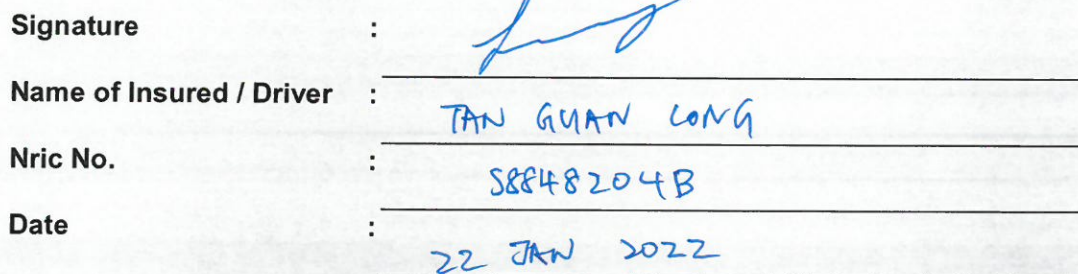 Signature :
Name of Insured / Driver : TAN GUAN LONG
Nric No. : S8848204B
Date : 22 JAN 2022